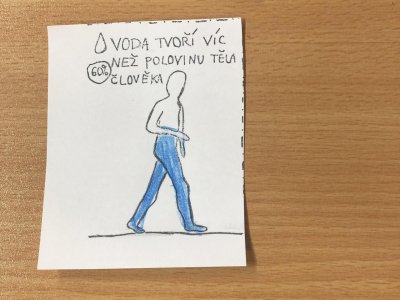 VODA TVOŘÍ VÍC
NEŽ POLOVINU TĚLA
60% ČLOVĚKA